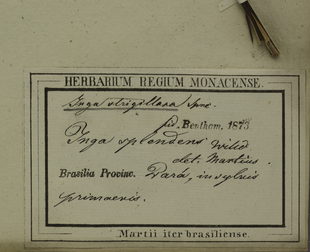 HERBARIUM REGIUM MONACENSE.
Inga strigillosa Spruce.
fid. Bentham, 1873
Inga splendens Willd
det. Martius.
Brasilia Provinc. Pará, in sylvis
primaevis.
Martii iter brasiliense.